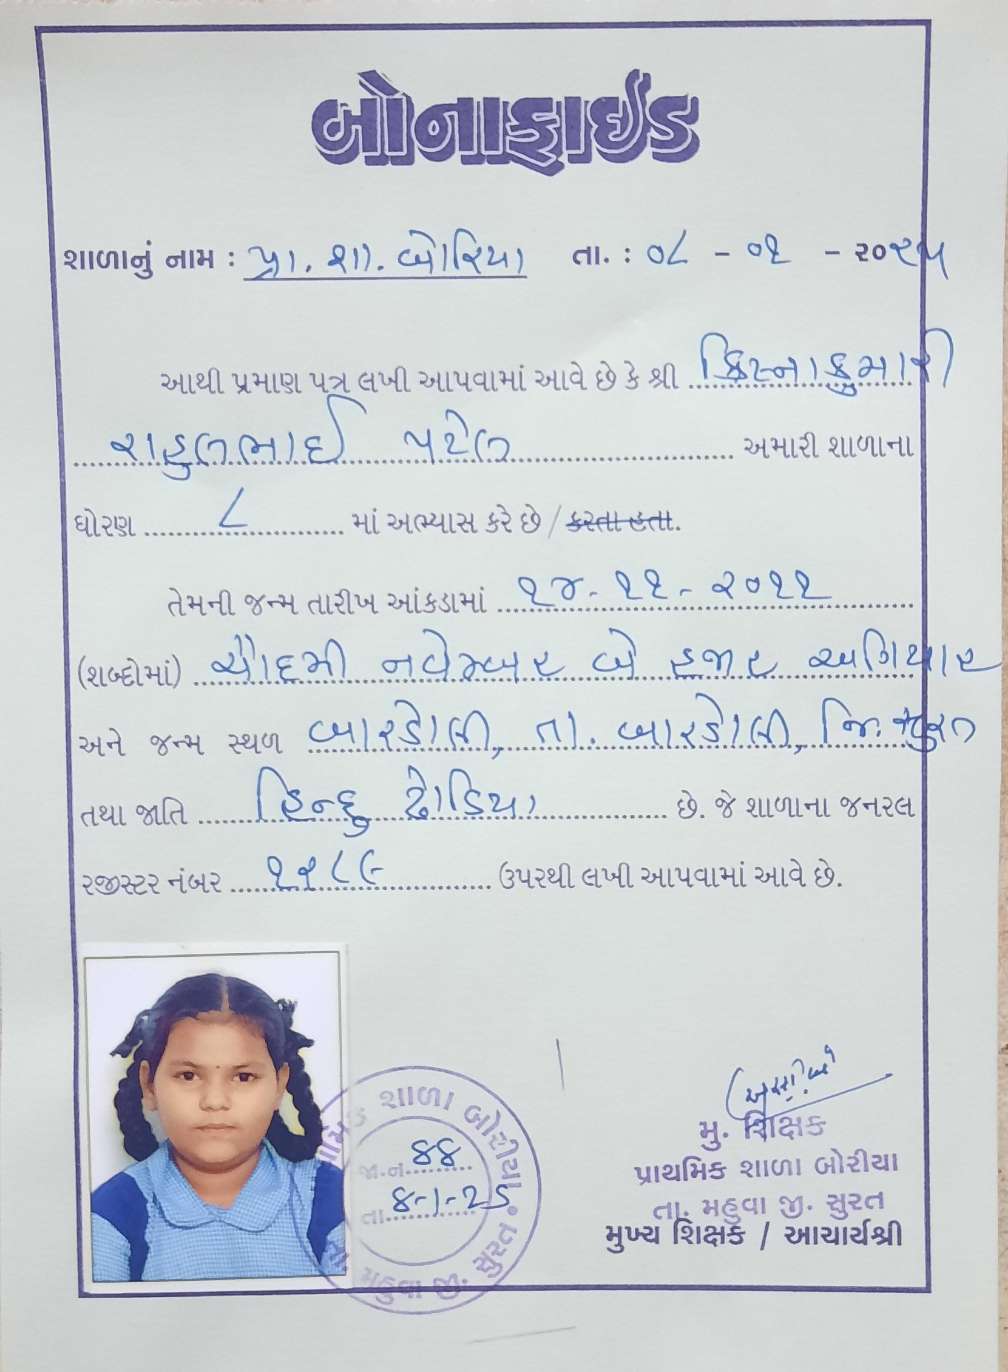 બોનાફાઈડ
શાળાનું નામ : પ્રા. શા. બોરિયા તા. : ૦૮ - ૦૧ - ૨૦૨૫
આથી પ્રમાણ પત્ર લખી આપવામાં આવે છે કે શ્રી ક્રિષ્નાકુમારી
રાહુલભાઈ પટેલ અમારી શાળાના
ધોરણ ૮ માં અભ્યાસ કરે છે / કરતા હતા.
તેમની જન્મ તારીખ આંકડામાં ૧૪-૧૧-૨૦૧૧
(શબ્દોમાં) ચૌદમી નવેમ્બર બે હજાર અગિયાર
અને જન્મ સ્થળ બારડોલી, તા. બારડોલી, જિ. સુરત
તથા જાતિ હિન્દુ ઢોડિયા છે. જે શાળાના જનરલ
રજીસ્ટર નંબર ૧૨૮૯ ઉપરથી લખી આપવામાં આવે છે.
શાળા બોરીયા
જા.નં. 44
તા. 8-1-25
તા. મહુવા જી. સુરત
મુ. શિક્ષક
પ્રાથમિક શાળા બોરીયા
તા. મહુવા જી. સુરત
મુખ્ય શિક્ષક / આચાર્યશ્રી